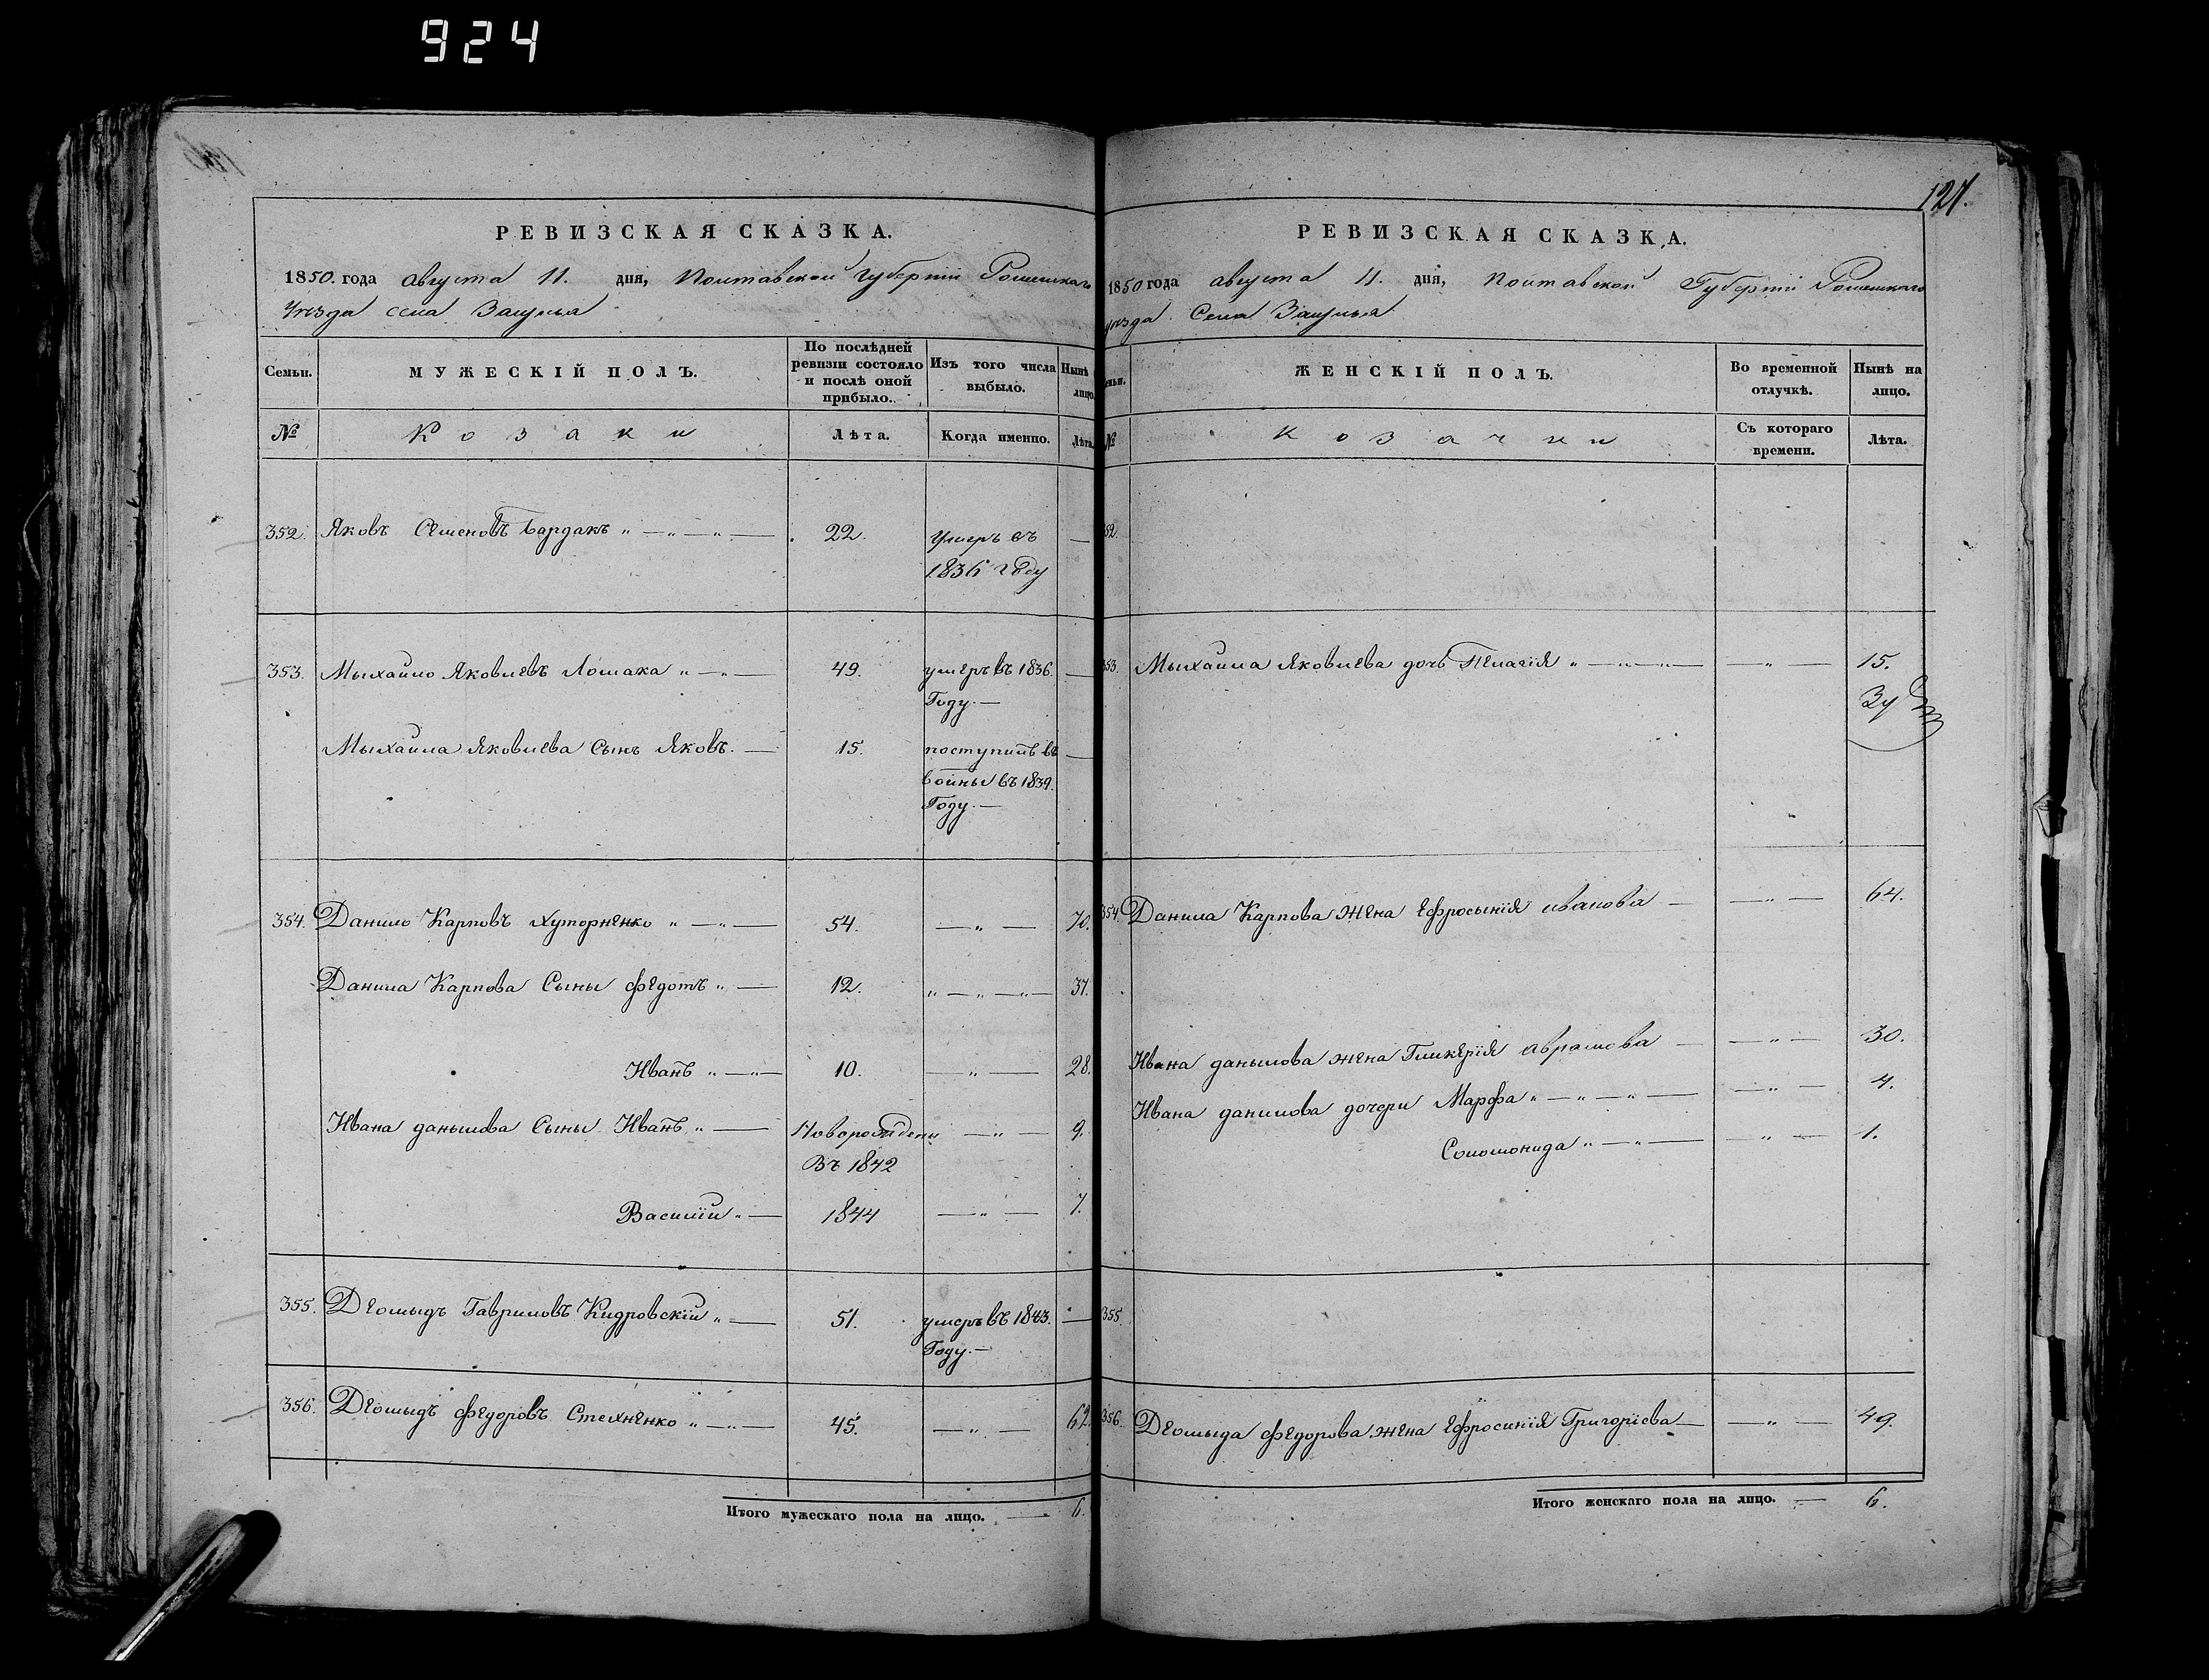 924
127.
РЕВИЗСКАЯ СКАЗКА.
1850. года августа 11. дня, Полтавской Губерніи Роменскаго
Уѣзда села
Семьи.
МУЖЕСКІЙ ПОЛЪ.
По послѣдней ревизіи состояло и послѣ оной прибыло.
Изъ того числа выбыло.
Нынѣ
лицо.
№
Козаки
Лѣта.
Когда именно.
Лѣта.
352. Яковъ Семеновъ Бардакъ „ — „ — „ — 22. умеръ въ —
1836 году
353. Михайло Яковлевъ Лошака „ — „ — 49. умеръ въ 1836. —
Году. —
Михайла Яковлева Сынъ Яковъ. — 15. поступилъ въ —
войны въ 1839.
Году. —
354. Данило Карповъ Хуторненко „ — „ — 54. — „ — 70.
Данила Карпова Сыны Федотъ „ — 12. „ — „ — „ — 37.
Иванъ „ — „ — 10. — „ — 28.
Ивана данылова Сыны Иванъ „ — Новорожденъ — „ — 9.
Въ 1842
Василій „ — 1844 — „ — 7.
355. Деомыдъ Гавриловъ Кидровскій „ — 51. умеръ въ 1843. —
Году. —
356. Деомыдъ Федоровъ Стехненко „ — „ — 45. — „ — 62.
Итого мужескаго пола на лицо. — 6.
РЕВИЗСКАЯ СКАЗКА.
1850 года августа 11. дня, Полтавской Губерніи Роменскаго
уѣзда Села
ЖЕНСКІЙ ПОЛЪ.
Во временной отлучкѣ.
Нынѣ на лицо.
№
Козачки
Съ котораго времени.
Лѣта.
352.
353. Михайла Яковлева дочь Пелагія „ — „ — „ — — „ — 15.
354. Данила Карпова жена Ефросынія иванова — — „ — 64.
Ивана данылова жена Гликерія аврамова — — „ — 30.
Ивана данилова дочери Марфа „ — „ — „ — — „ — 4.
Соломонида „ — „ — — „ — 1.
355.
356. Деомыда Федорова жена Ефросинія Григоріева — — „ — 49.
Итого женскаго пола на лицо. — 6.